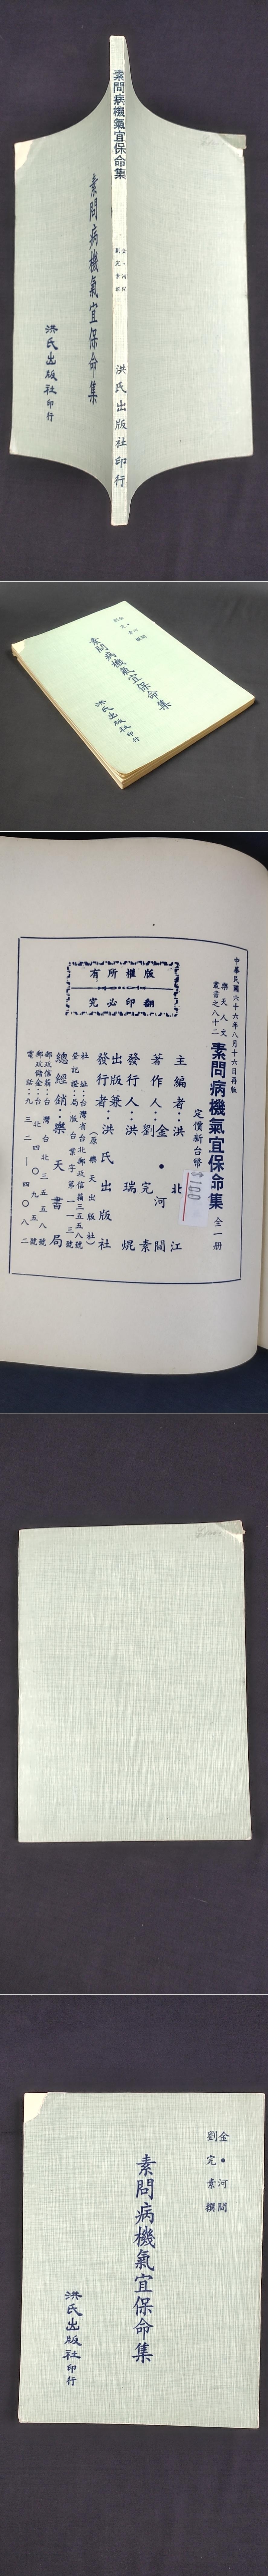 素問病機氣宜保命集
金•河間
劉完素撰
洪氏出版社印行
素問病機氣宜保命集
洪氏出版社印行
金•河間
劉完素撰
素問病機氣宜保命集
洪氏出版社印行
中華民國六十六年八月十六日再版
樂天人文
叢書之八十二
素問病機氣宜保命集 全一册
定價新台幣
$100
主編者：洪北江
著作人：金•河間
劉完素
發行人：洪瑞焜
出版兼
發行者：洪氏出版社
（原樂天出版社）
社址：台灣省台北郵政信箱三五五八號
登記證：局版台業字第一一三號
總經銷：樂天書局
郵政信箱：台灣台北三五五八號
郵政儲金：台北四〇九五五號
電話：九三二一四〇八二
版權所有
翻印必究
金•河間
劉完素撰
素問病機氣宜保命集
洪氏出版社印行